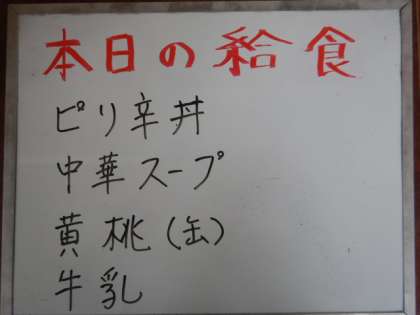 本日の給食
ピリ辛丼
中華スープ
黄桃(缶)
牛乳